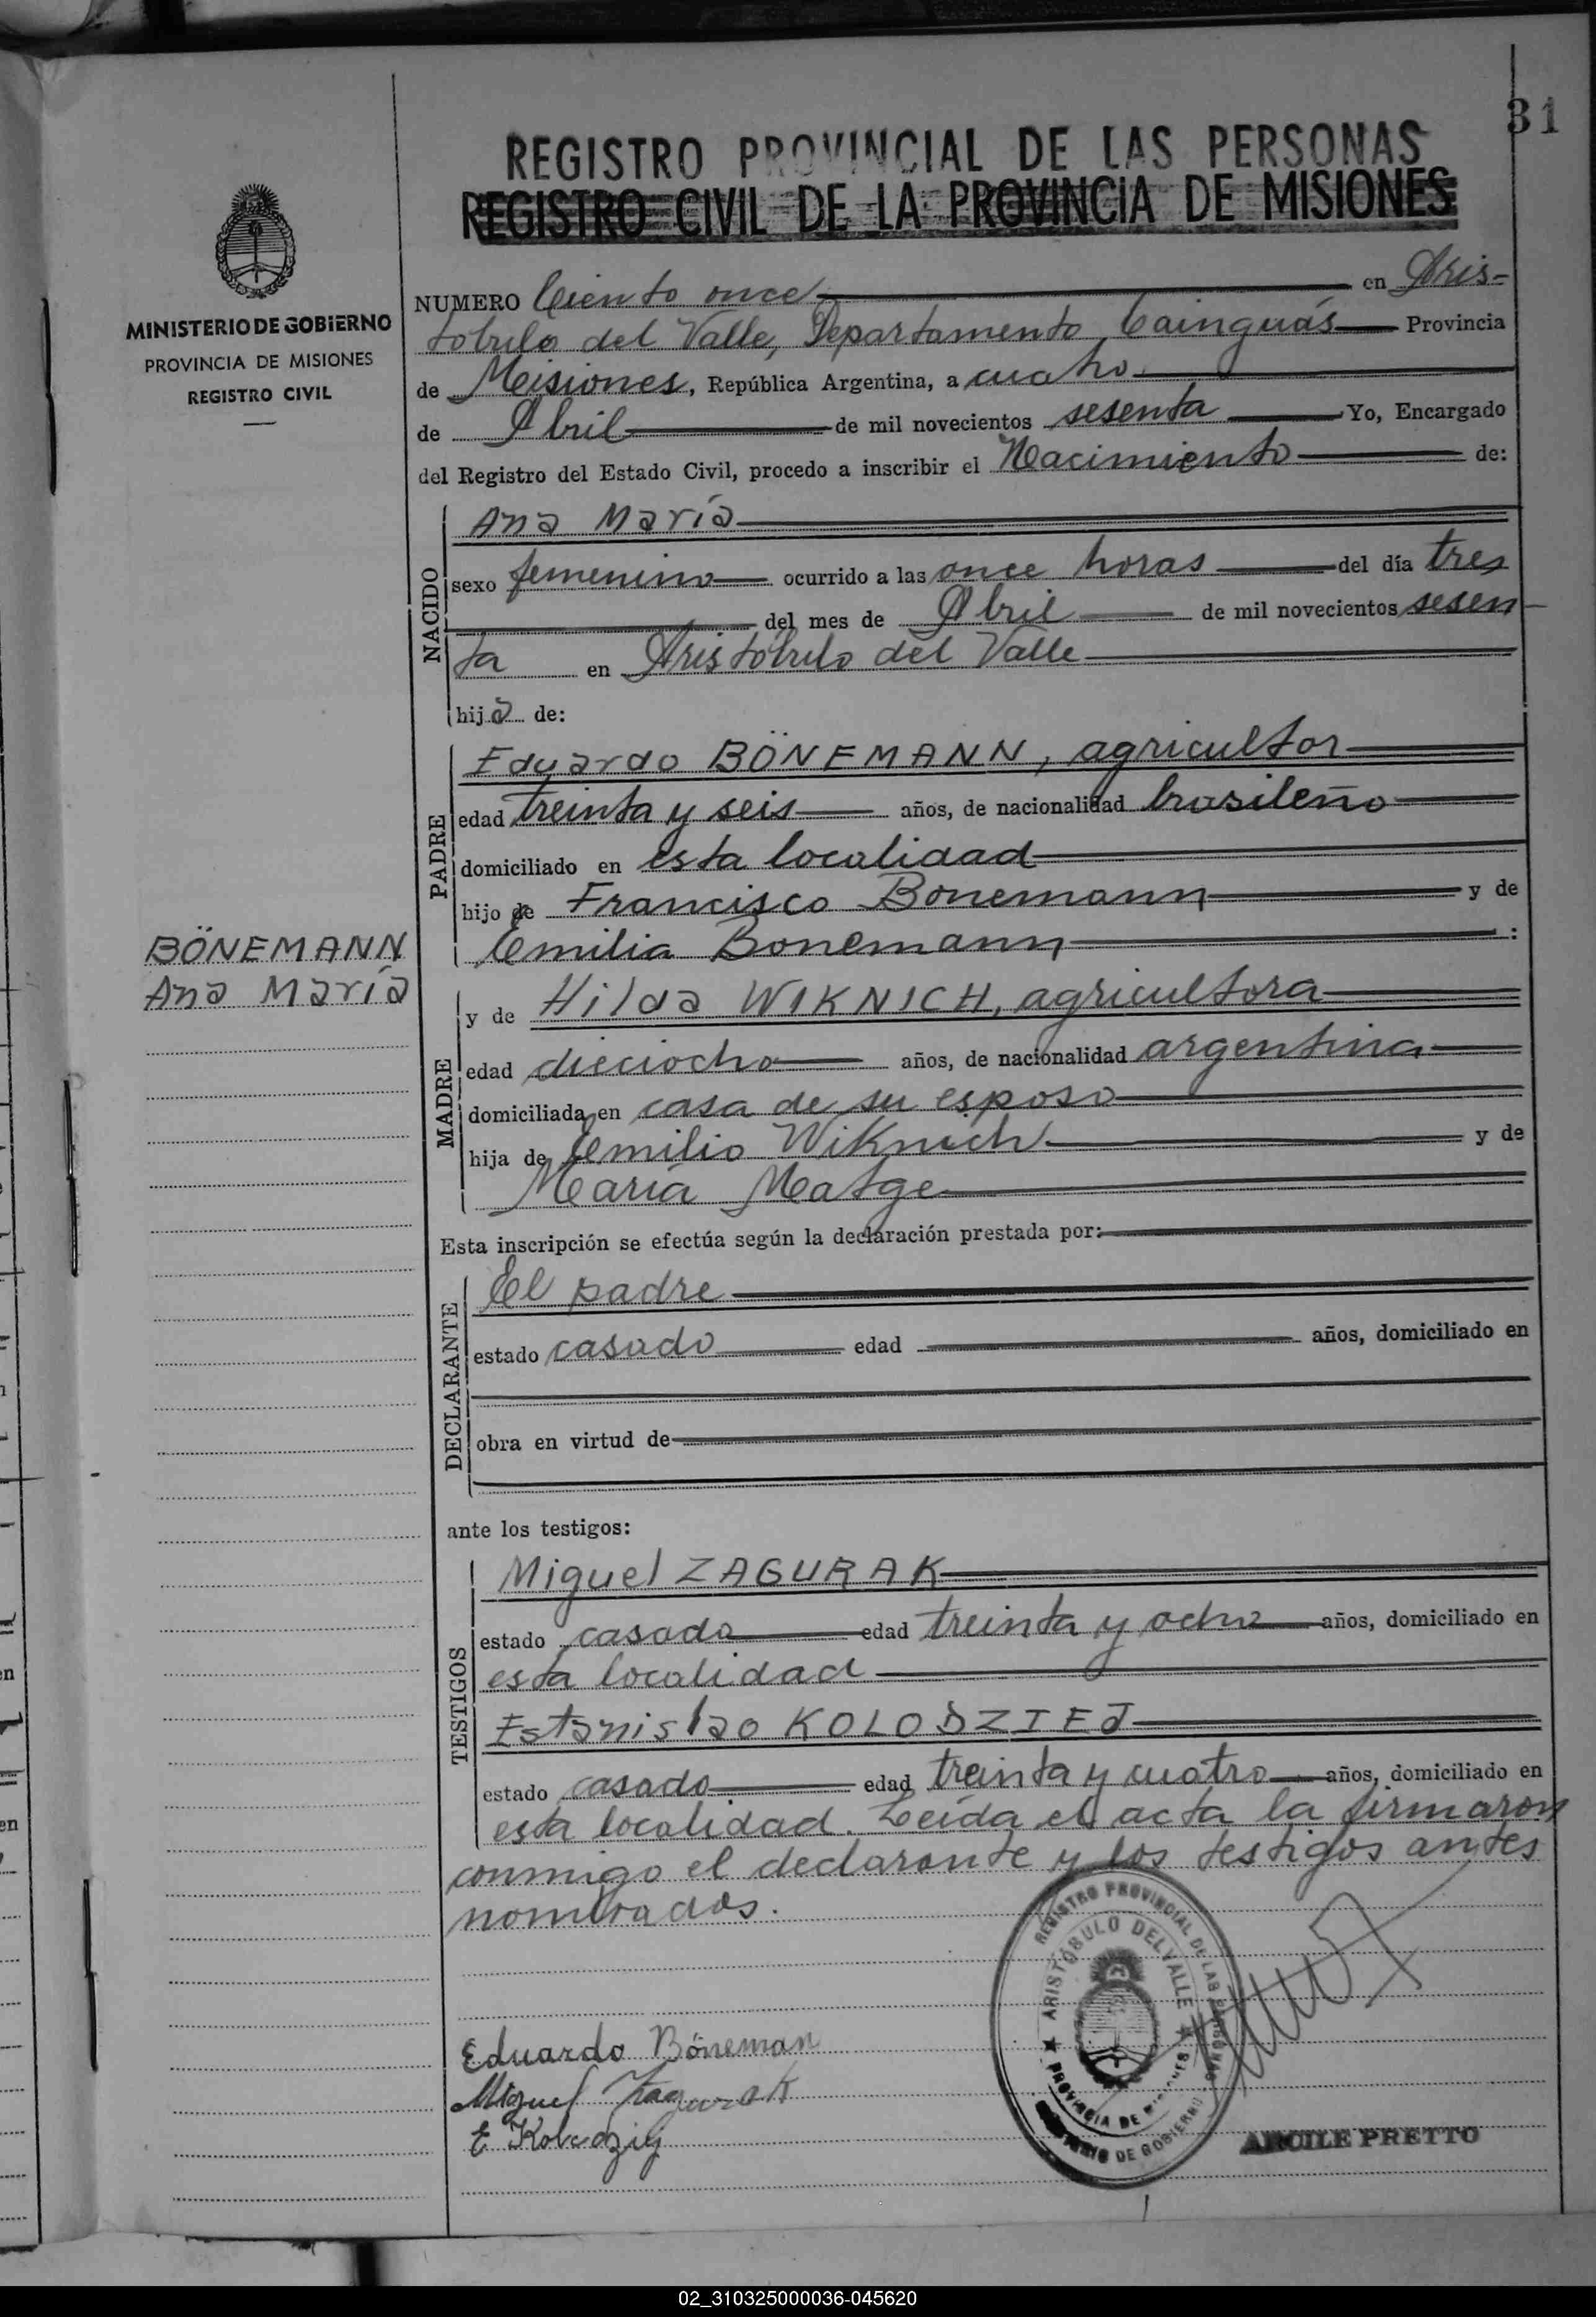 31
REGISTRO PROVINCIAL DE LAS PERSONAS
REGISTRO CIVIL DE LA PROVINCIA DE MISIONES
MINISTERIO DE GOBIERNO
PROVINCIA DE MISIONES
REGISTRO CIVIL
NUMERO Ciento once en Aris-
tóbulo del Valle, Departamento Cainguás Provincia
de Misiones, República Argentina, a cuatro
de Abril de mil novecientos sesenta Yo, Encargado
del Registro del Estado Civil, procedo a inscribir el Nacimiento de:
NACIDO
Ana María
sexo femenino ocurrido a las once horas del día tres
del mes de Abril de mil novecientos sesen
ta en Aristóbulo del Valle
hija de:
PADRE
Eduardo BÖNEMANN, agricultor
edad treinta y seis años, de nacionalidad brasileño
domiciliado en esta localidad
hijo de Francisco Bonemann y de
Emilia Bonemann :
BÖNEMANN
Ana María
MADRE
y de Hilda WIKNICH, agricultora
edad dieciocho años, de nacionalidad argentina
domiciliada en casa de su esposo
hija de Emilio Wiknich y de
María Matge
Esta inscripción se efectúa según la declaración prestada por:
DECLARANTE
El padre
estado casado edad años, domiciliado en
obra en virtud de
ante los testigos:
TESTIGOS
Miguel ZAGURAK
estado casado edad treinta y ocho años, domiciliado en
esta localidad
Estanislao KOLODZIEJ
estado casado edad treinta y cuatro años, domiciliado en
esta localidad. Leída el acta la firmaron
conmigo el declarante y los testigos antes
nombrados.
REGISTRO PROVINCIAL DE LAS PERSONAS
ARISTÓBULO DEL VALLE
PROVINCIA DE MISIONES
MINISTERIO DE GOBIERNO
Eduardo Böneman
Miguel Zagurak
E Kolodziej
ARCILE PRETTO
02_310325000036-045620